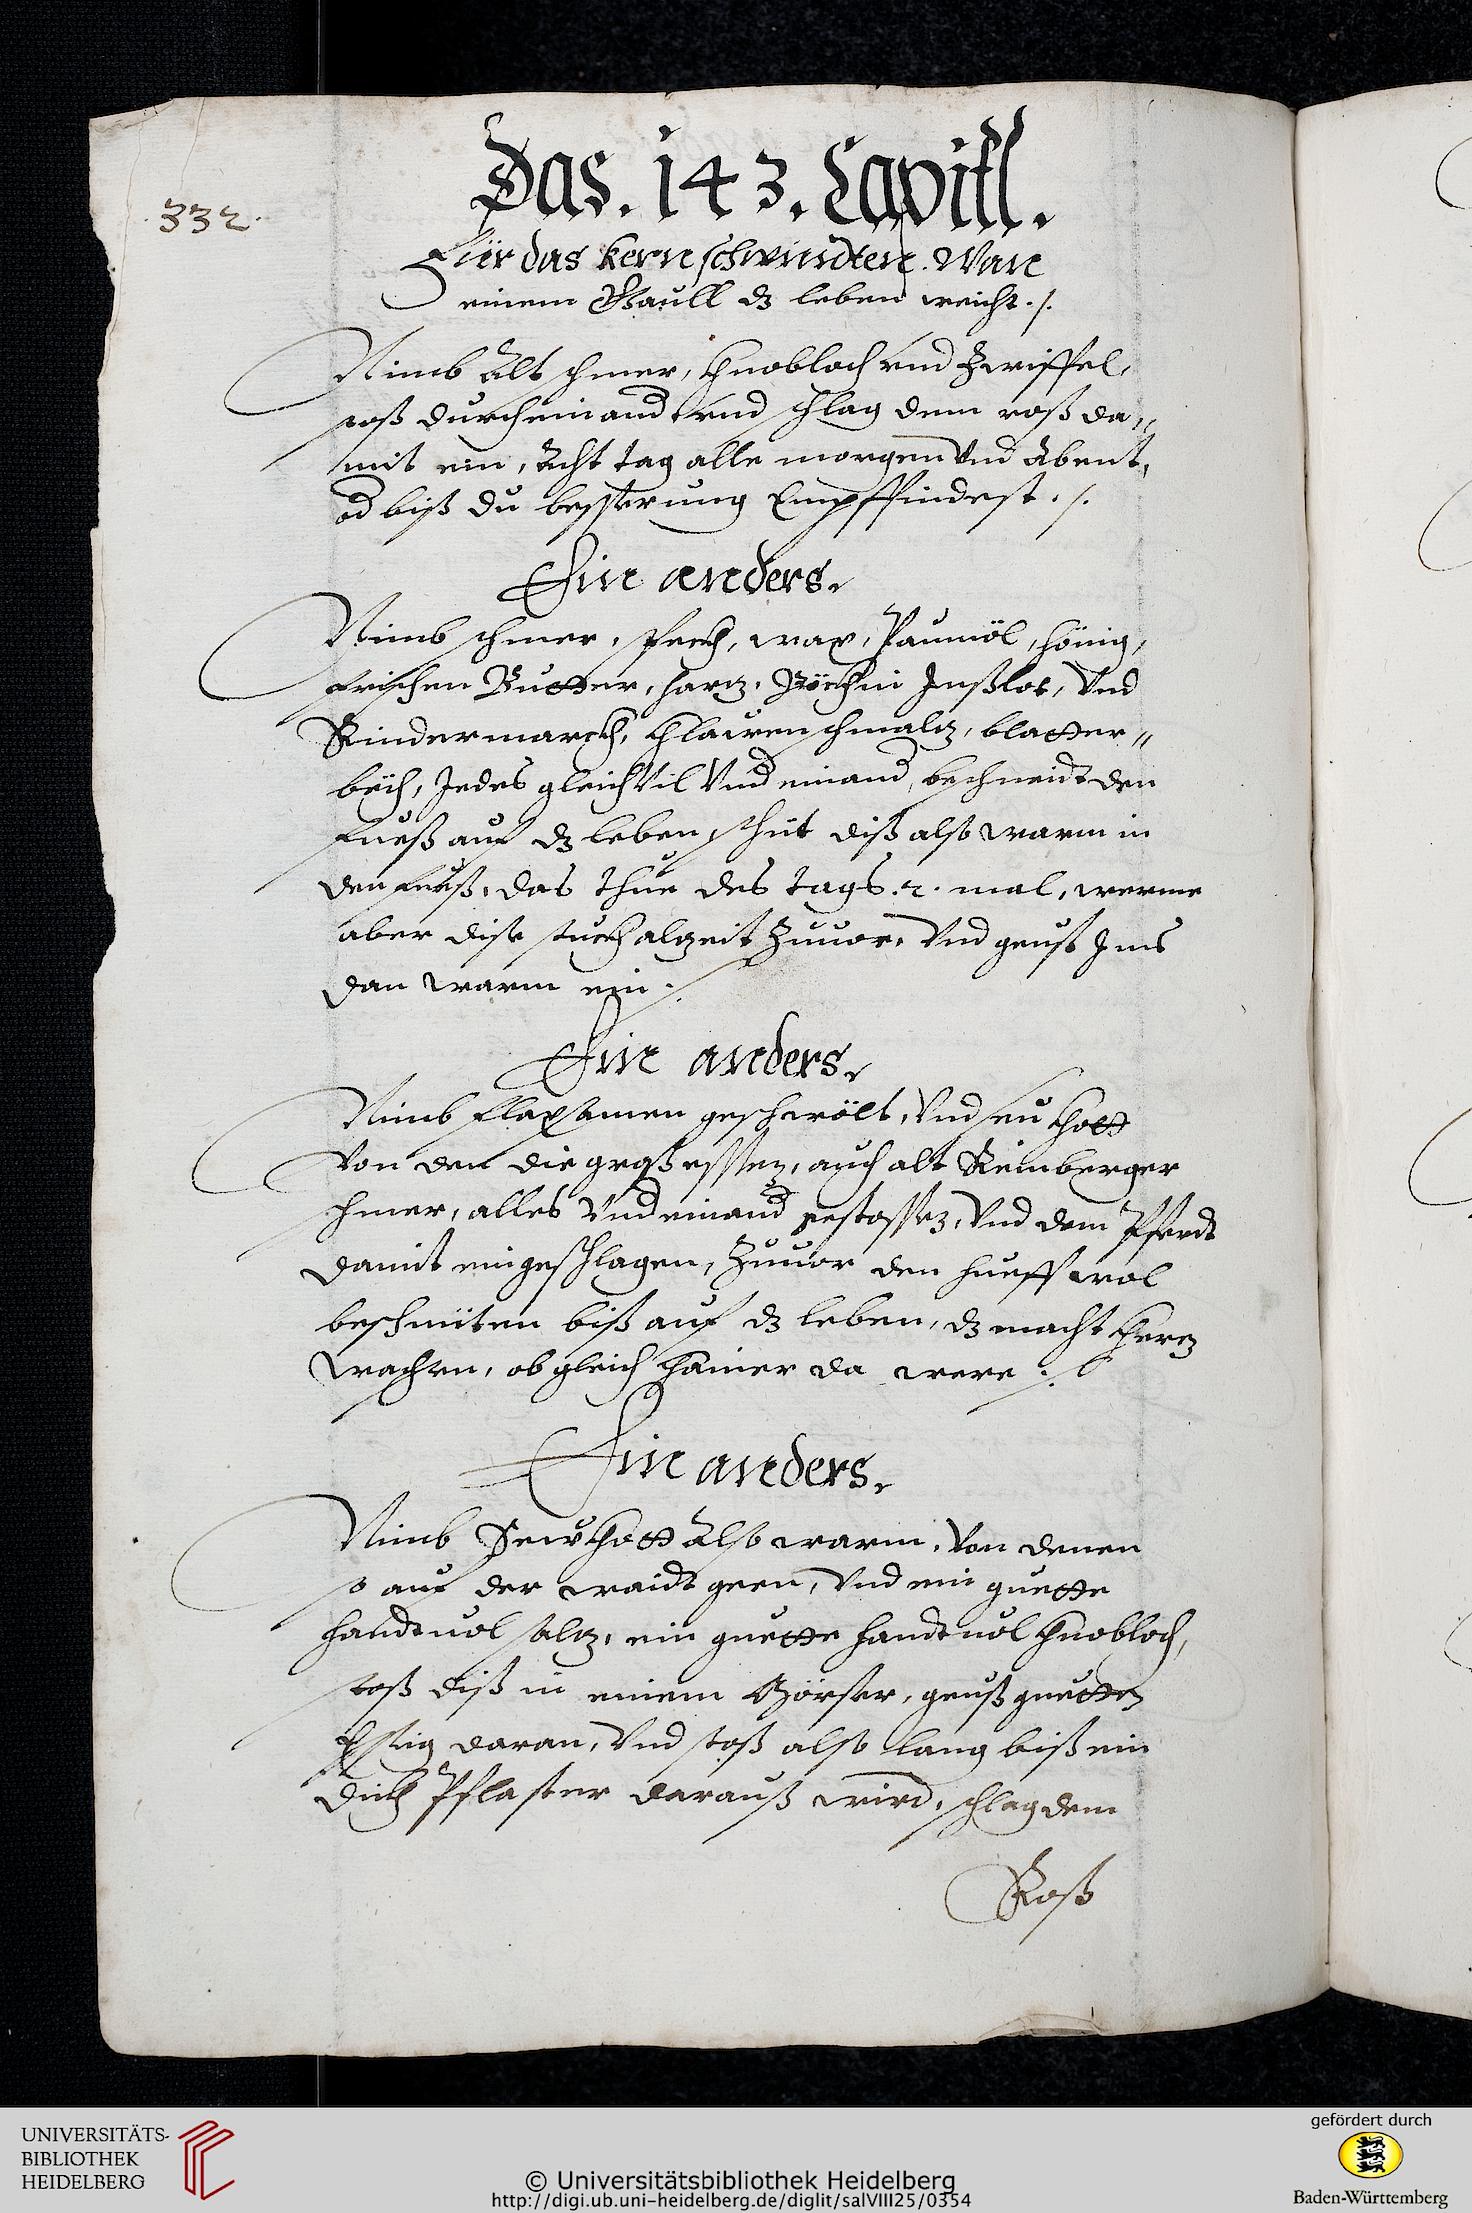 .332.
Das. 143. Capitl.
Für das kern schwindten. Wan
einem Gaull dz leben weicht ./.
Nimb Alt schmer, Knobloch vnd Zwiffel,
stoß durcheinand vnd schlag dem roß da„
mit ein, Acht tag alle morgen vnd Abent,
od biß du besserung Empffindest ./.
Ein anders.
Nimb schmer, Pech, wax, Paumöl, hönig,
frischen Butter, harz, Inßlet, Vnd
Rindermarckh, schmalz, blatter„
Jedes gleich vil Vndeinand, beschneidt den
fueß auf dz leben, schüt diß also warm in
den fueß, das thue des tags .2. mal, werme
aber dise stuckh alzeit Zuuor, Vnd geuß Ims
dan warm ein ./.
Ein anders.
Nimb flaxsamen geschwölt, Vnd seu khott
Von den die graß essen, auch alt
schmer, alles Vndeinand gestossen, Vnd dem Pferdt
damit eingeschlagen, Zuuor den hueff wol
beschniten biß auf dz leben, dz macht kheren
wachsen, ob gleich khainer da were ./.
Ein anders.
Nimb Sew khott Also warm, Von denen
so auf der waidt geen, Vnd ein guette
handtuol salz, ein guette handtuol Knobloch,
stoß diß in einem Mörser, geuß guetten
Essig daran, Vnd stoß also lang biß ein
dickh Pflaster darauß wird, schlag dem
Roß
UNIVERSITÄTS-
BIBLIOTHEK
HEIDELBERG
© Universitätsbibliothek Heidelberg
http://digi.ub.uni-heidelberg.de/diglit/salVIII25/0354
gefördert durch
Baden-Württemberg